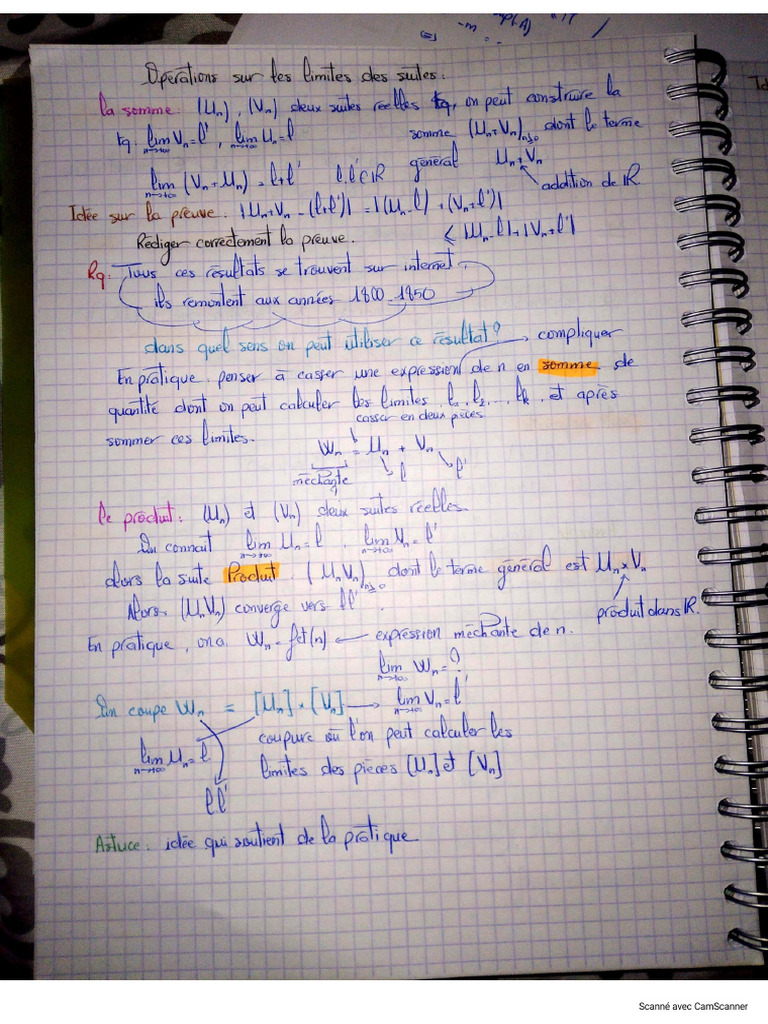 Opérations sur les limites des suites.
La somme : (Un), (Vn) deux suites réelles tq, on peut construire la
tq. lim Vn = l', lim Un = l somme (Un+Vn)n≥0 dont le terme
n→+∞ n→+∞
général Un+Vn
lim (Vn + Un) = l+l' l,l'∈IR
n→+∞
addition de IR
Idée sur la preuve. |Un+Vn - (l+l')| = |(Un-l) + (Vn+l')|
≤ |Un-l|+|Vn+l'|
Rédiger correctement la preuve.
Rq: Tous ces résultats se trouvent sur internet,
ils remontent aux années 1800-1850
dans quel sens on peut utiliser ce résultat?
compliquer
En pratique. penser à casser une expression de n en somme de
quantité dont on peut calculer les limites, l1, l2, ..., lk, et après
sommer ces limites.
casser en deux pièces
Wn = Un + Vn
méchante l l'
Le produit: (Un) et (Vn) deux suites réelles.
On connait lim Un = l, lim Vn = l'
n→+∞ n→+∞
alors la suite Produit. (Un Vn)n≥0 dont le terme général est Un×Vn
Alors, (UnVn) converge vers ll'.
produit dans IR.
En pratique, on a Wn = fct(n) ← expression méchante de n.
lim Wn = ?
n→+∞
On coupe Wn = [Un] × [Vn] → lim Vn = l'
n→+∞
coupure où l'on peut calculer les
lim Un = l
n→+∞
limites des pièces [Un] et [Vn]
ll'
Astuce : idée qui soutient de la pratique
Scanné avec CamScanner